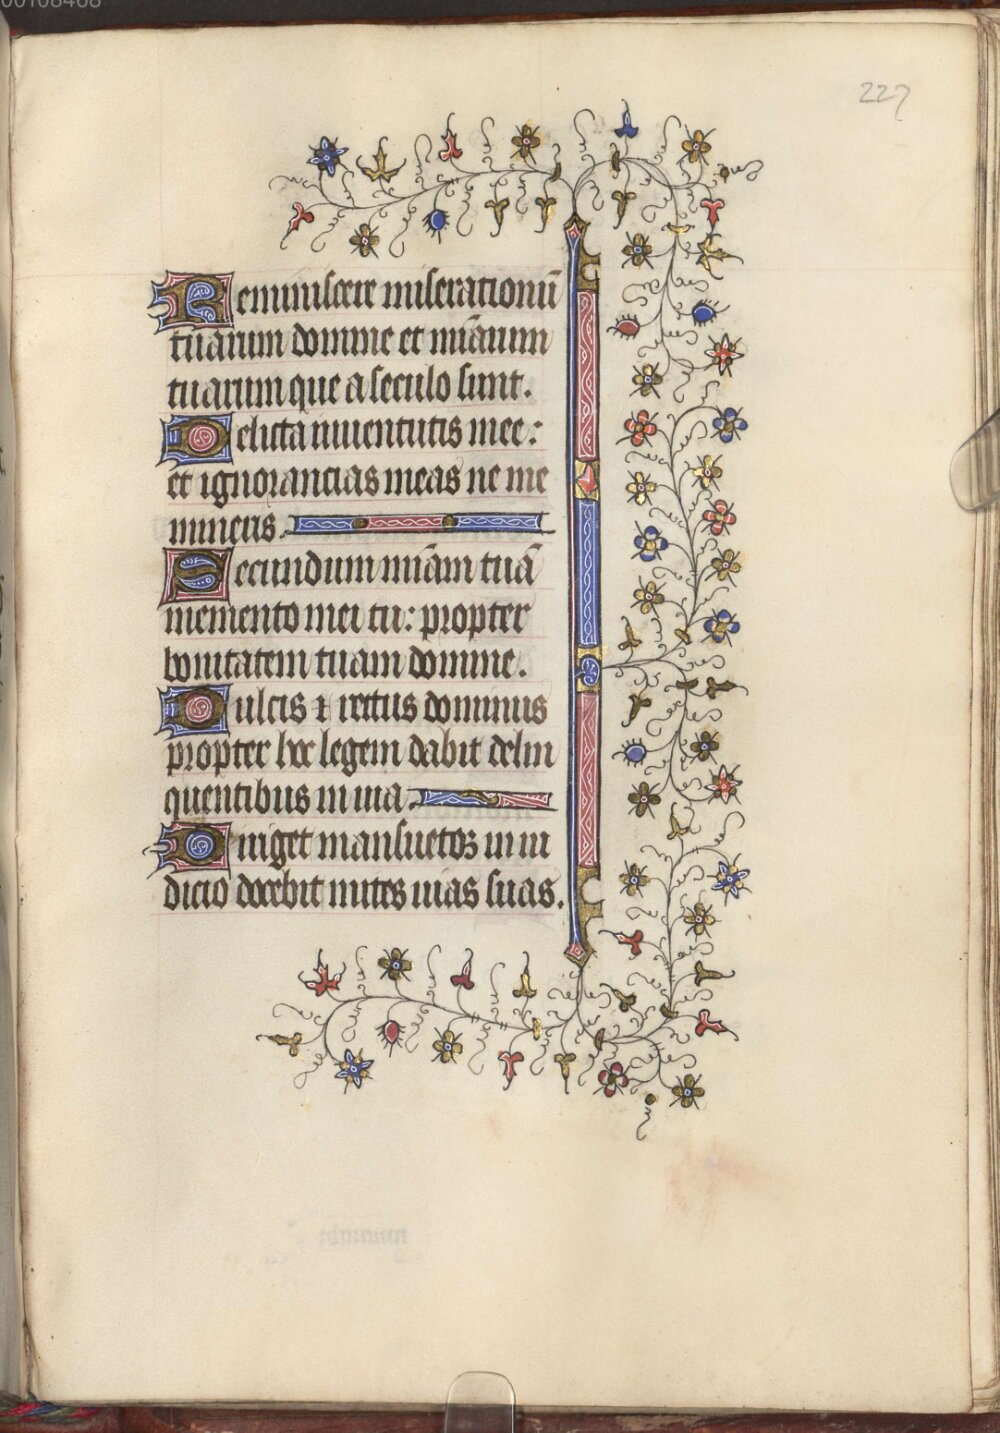 00108468
227
Reminiscere miserationū
tuarum domine et miāarum
tuarum que a seculo sunt.
Delicta iuuentutis mee:
et ignorancias meas ne me
mineris.
Secundum miām tuā
memento mei tu: propter
bonitatem tuam domine.
Dulcis ⁊ rectus dominus
propter hoc legem dabit delin
quentibus in uia.
Diriget mansuetos in iu
dicio docebit mites uias suas.